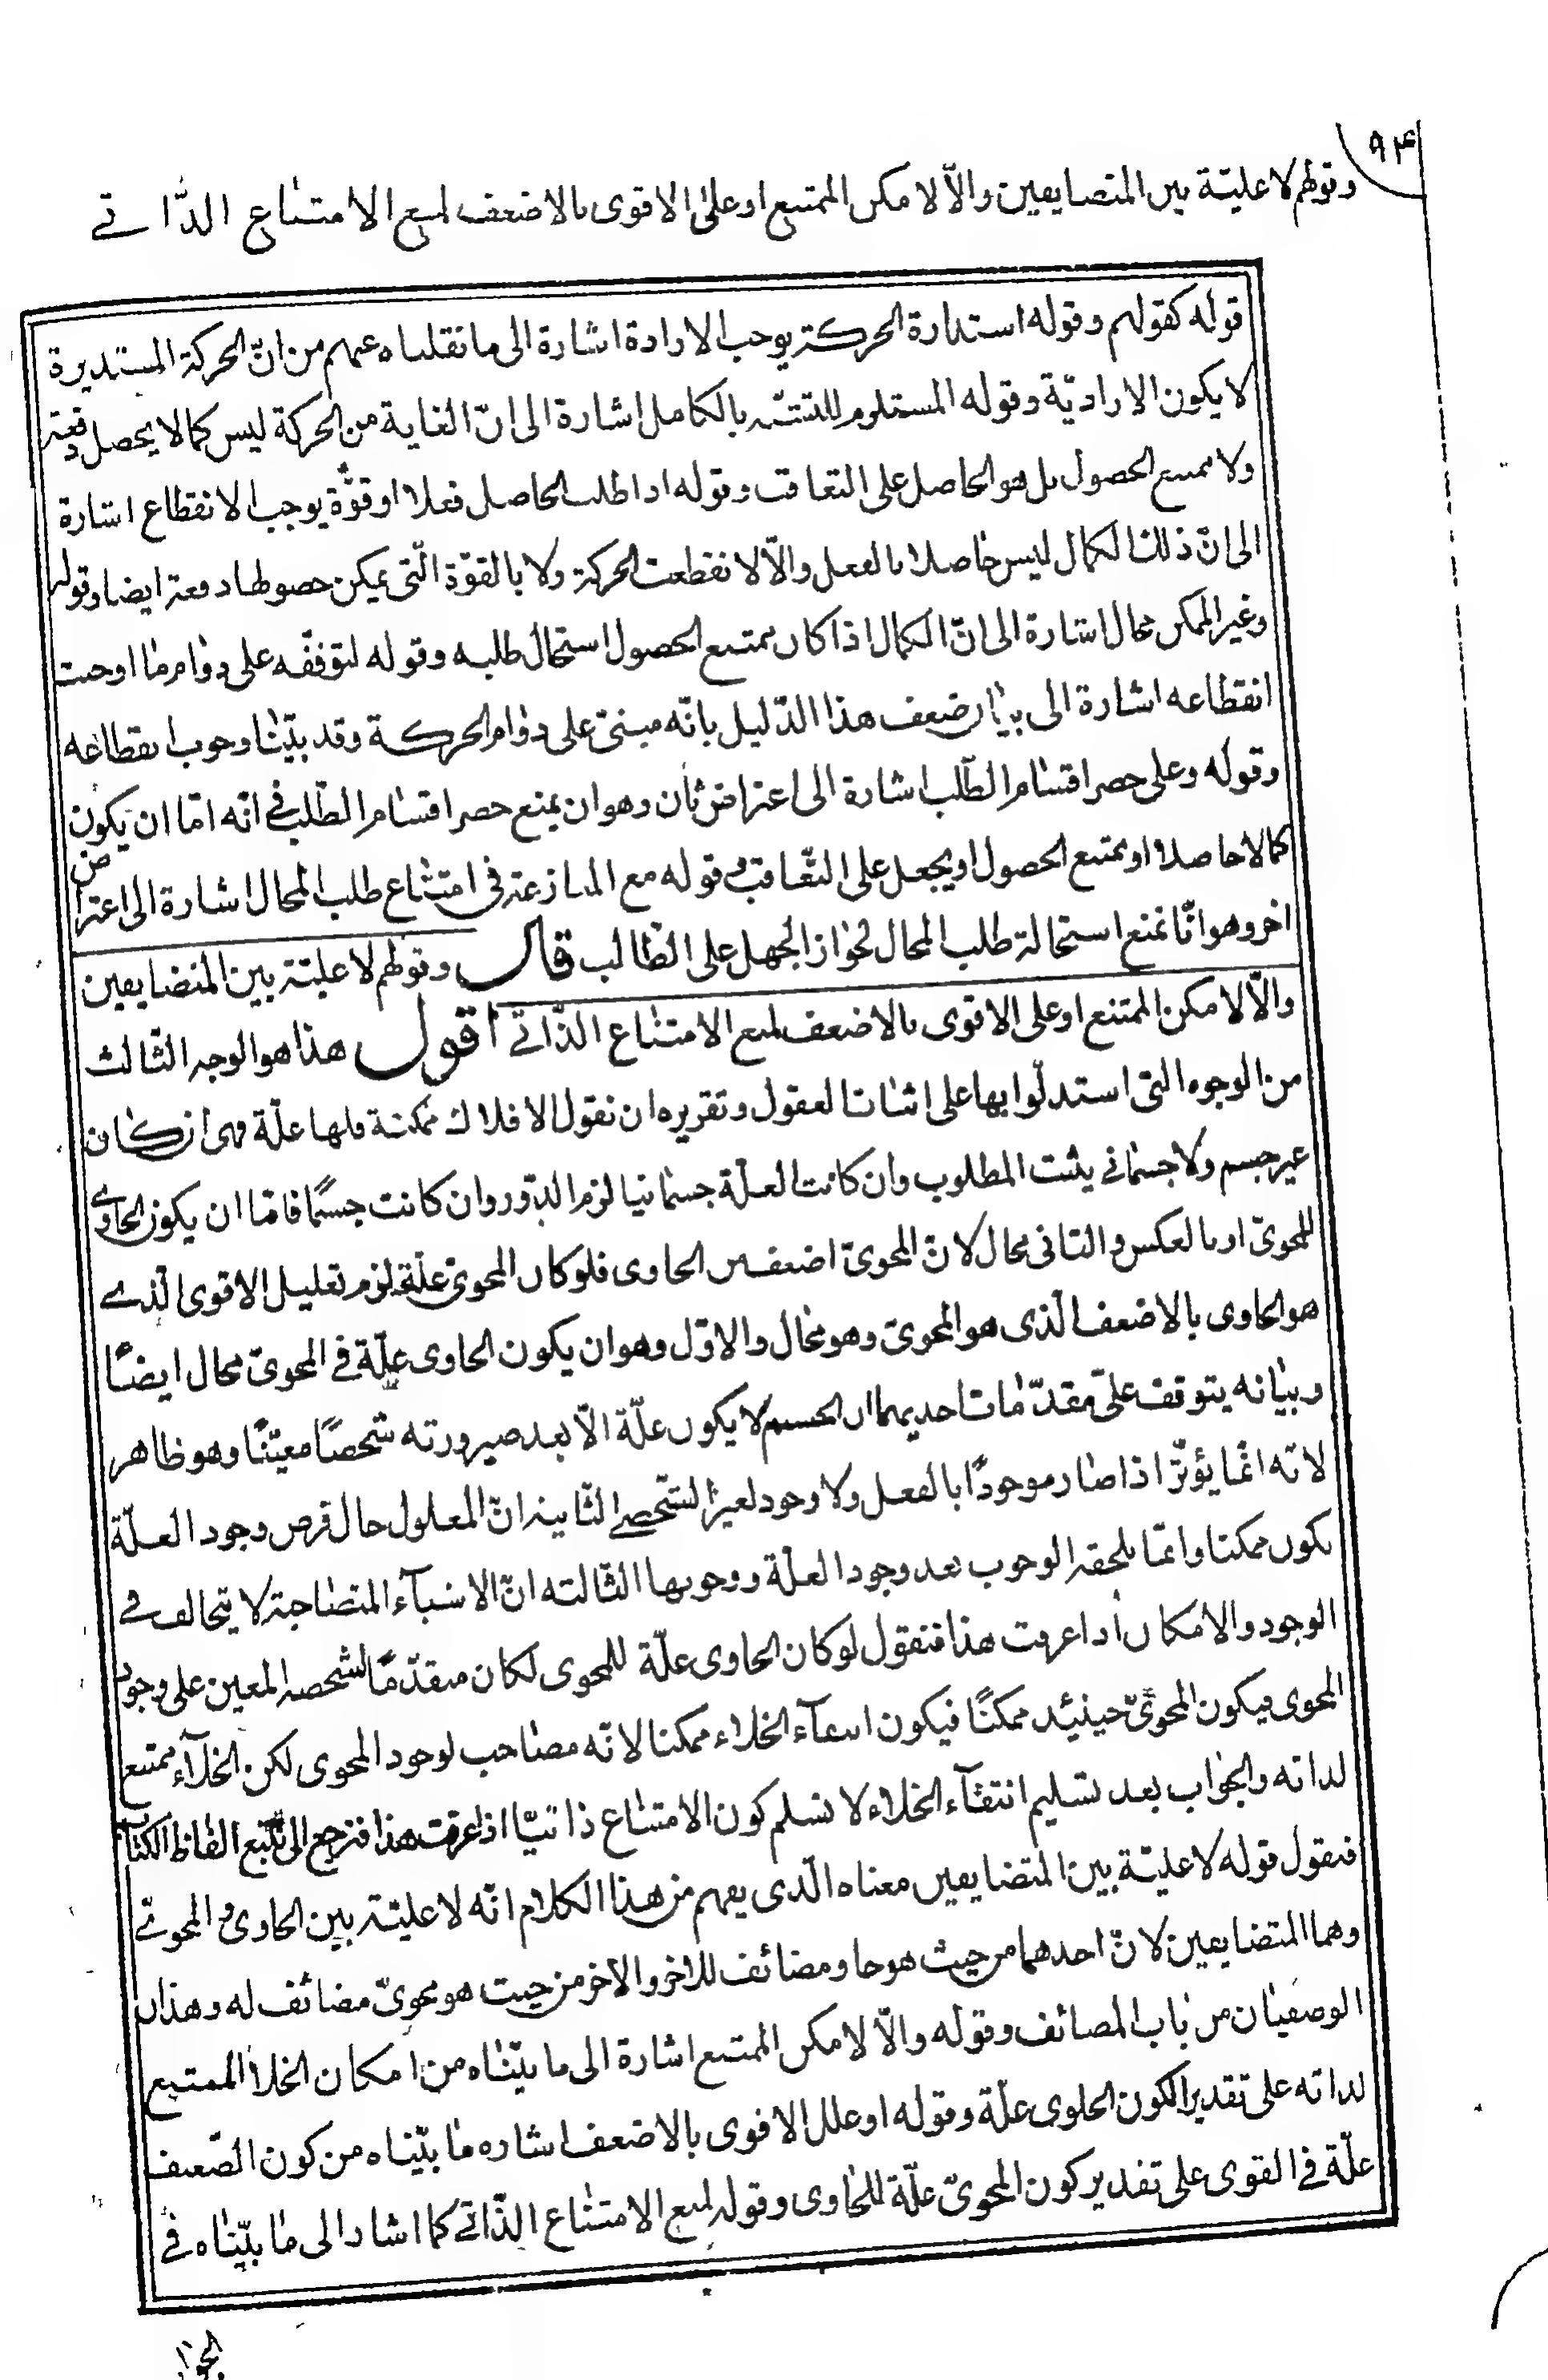 ٩٤
وقولهم لا علية بين المتضايفين والّا لامكن الممتنع او علل الاقوى بالاضعف لمنع الامتناع الذّاتي
قوله كقولهم وقوله استدارة الحركة يوجب الارادة اشارة الى ما نقلناه عنهم من انّ الحركة المستديرة
لا يكون الا اراديّة وقوله المستلزم للتشبّه بالكامل اشارة الى انّ الغاية من الحركة ليس كمالا يحصل دفعة
ولا ممتنع الحصول بل هو الحاصل على التعاقب وقوله اذ اطلب الحاصل فعلا او قوّة يوجب الانقطاع اشارة
الى انّ ذلك الكمال ليس حاصلا بالفعل والّا لانقطعت الحركة ولا بالقوّة الّتى يمكن حصولها دفعة ايضا وقوله
وغير الممكن محال اشارة الى انّ الكمال اذا كان ممتنع الحصول استحال طلبه وقوله لتوقّفه على دوام ما اوجبت
انقطاعه اشارة الى بيان ضعف هذا الدّليل بانّه مبنىّ على دوام الحركة وقد بيّنّا وجوب انقطاعه
وقوله وعلى حصر اقسام الطّلب اشارة الى اعتراض ثان وهو ان يمنع حصر اقسام الطّلب في انّه امّا ان يكون
كمالا حاصلا او يمتنع الحصول او يجعل على التّعاقب وقوله مع المنازعة فى امتناع طلب المحال اشارة الى اعتراض
اخر وهو انّا نمنع استحالة طلب المحال لجواز الجهل على الطّالب قال وقولهم لا عليّة بين المتضايفين
والّا لامكن الممتنع او علل الاقوى بالاضعف لمنع الامتناع الذّاتي اقول هذا هو الوجه الثّالث
من الوجوه التى استدلّوا بها على اثبات العقول وتقريره ان نقول الافلاك ممكنة فلها علّة فهى ان كان
غير جسم ولا جسمانى يثبت المطلوب وان كانت العلّة جسمانيا لزم الدّور وان كانت جسمًا فامّا ان يكون الحاوى
المحوىّ او بالعكس والثانى محال لانّ المحوىّ اضعف من الحاوى فلو كان المحوىّ علّة لزم تعليل الاقوى الّذى
هو الحاوى بالاضعف الّذى هو المحوىّ وهو محال والاوّل وهو ان يكون الحاوى علّة في المحوىّ محال ايضًا
وبيانه يتوقف على مقدّمات احديهما ان الجسم لا يكون علّة الّا بعد صيرورته شخصًا معيّنًا وهو ظاهر
لانّه انّما يؤثّر اذا صار موجودًا بالفعل ولا وجود لغير الشّخصى الثّانية انّ المعلول حال فرض وجود العلّة
يكون ممكنا وانّما يلحقه الوجوب بعد وجود العلّة ووجوبها الثّالثة انّ الاشياء المتصاحبة لا يتخالف فى
الوجود والامكان اذا عرفت هذا فنقول لو كان الحاوى علّة للمحوى لكان متقدّمًا لشخصه المعين على وجود
المحوى فيكون المحوىّ حينئذ ممكنًا فيكون انتفاء الخلاء ممكنا لانّه مصاحب لوجود المحوى لكن الخلاء ممتنع
لذاته والجواب بعد تسليم انتفاء الخلاء لا نسلم كون الامتناع ذاتيّا اذا عرفت هذا فنرجع الى تتبّع الفاظ الكتاب
فنقول قوله لا عليّة بين المتضايفين معناه الّذى يفهم من هذا الكلام انّه لا عليّة بين الحاوى والمحوىّ
وهما المتضايفين لانّ احدهما من حيث هو حاو ومضائف للاخر والاخر من حيث هو محوىّ مضائف له وهذان
الوصفيان من باب المضائف وقوله والّا لامكن الممتنع اشارة الى ما بيّنّاه من امكان الخلا الممتنع
لذاته على تقدير الكون الحاوى علّة وقوله او علل الاقوى بالاضعف اشاره ما بيّناه من كون الضّعيف
علّة في القوى على تقدير كون المحوىّ علّة للحاوى وقوله لمنع الامتناع الذّاتي كما اشار الى ما بيّناه في
الجواب